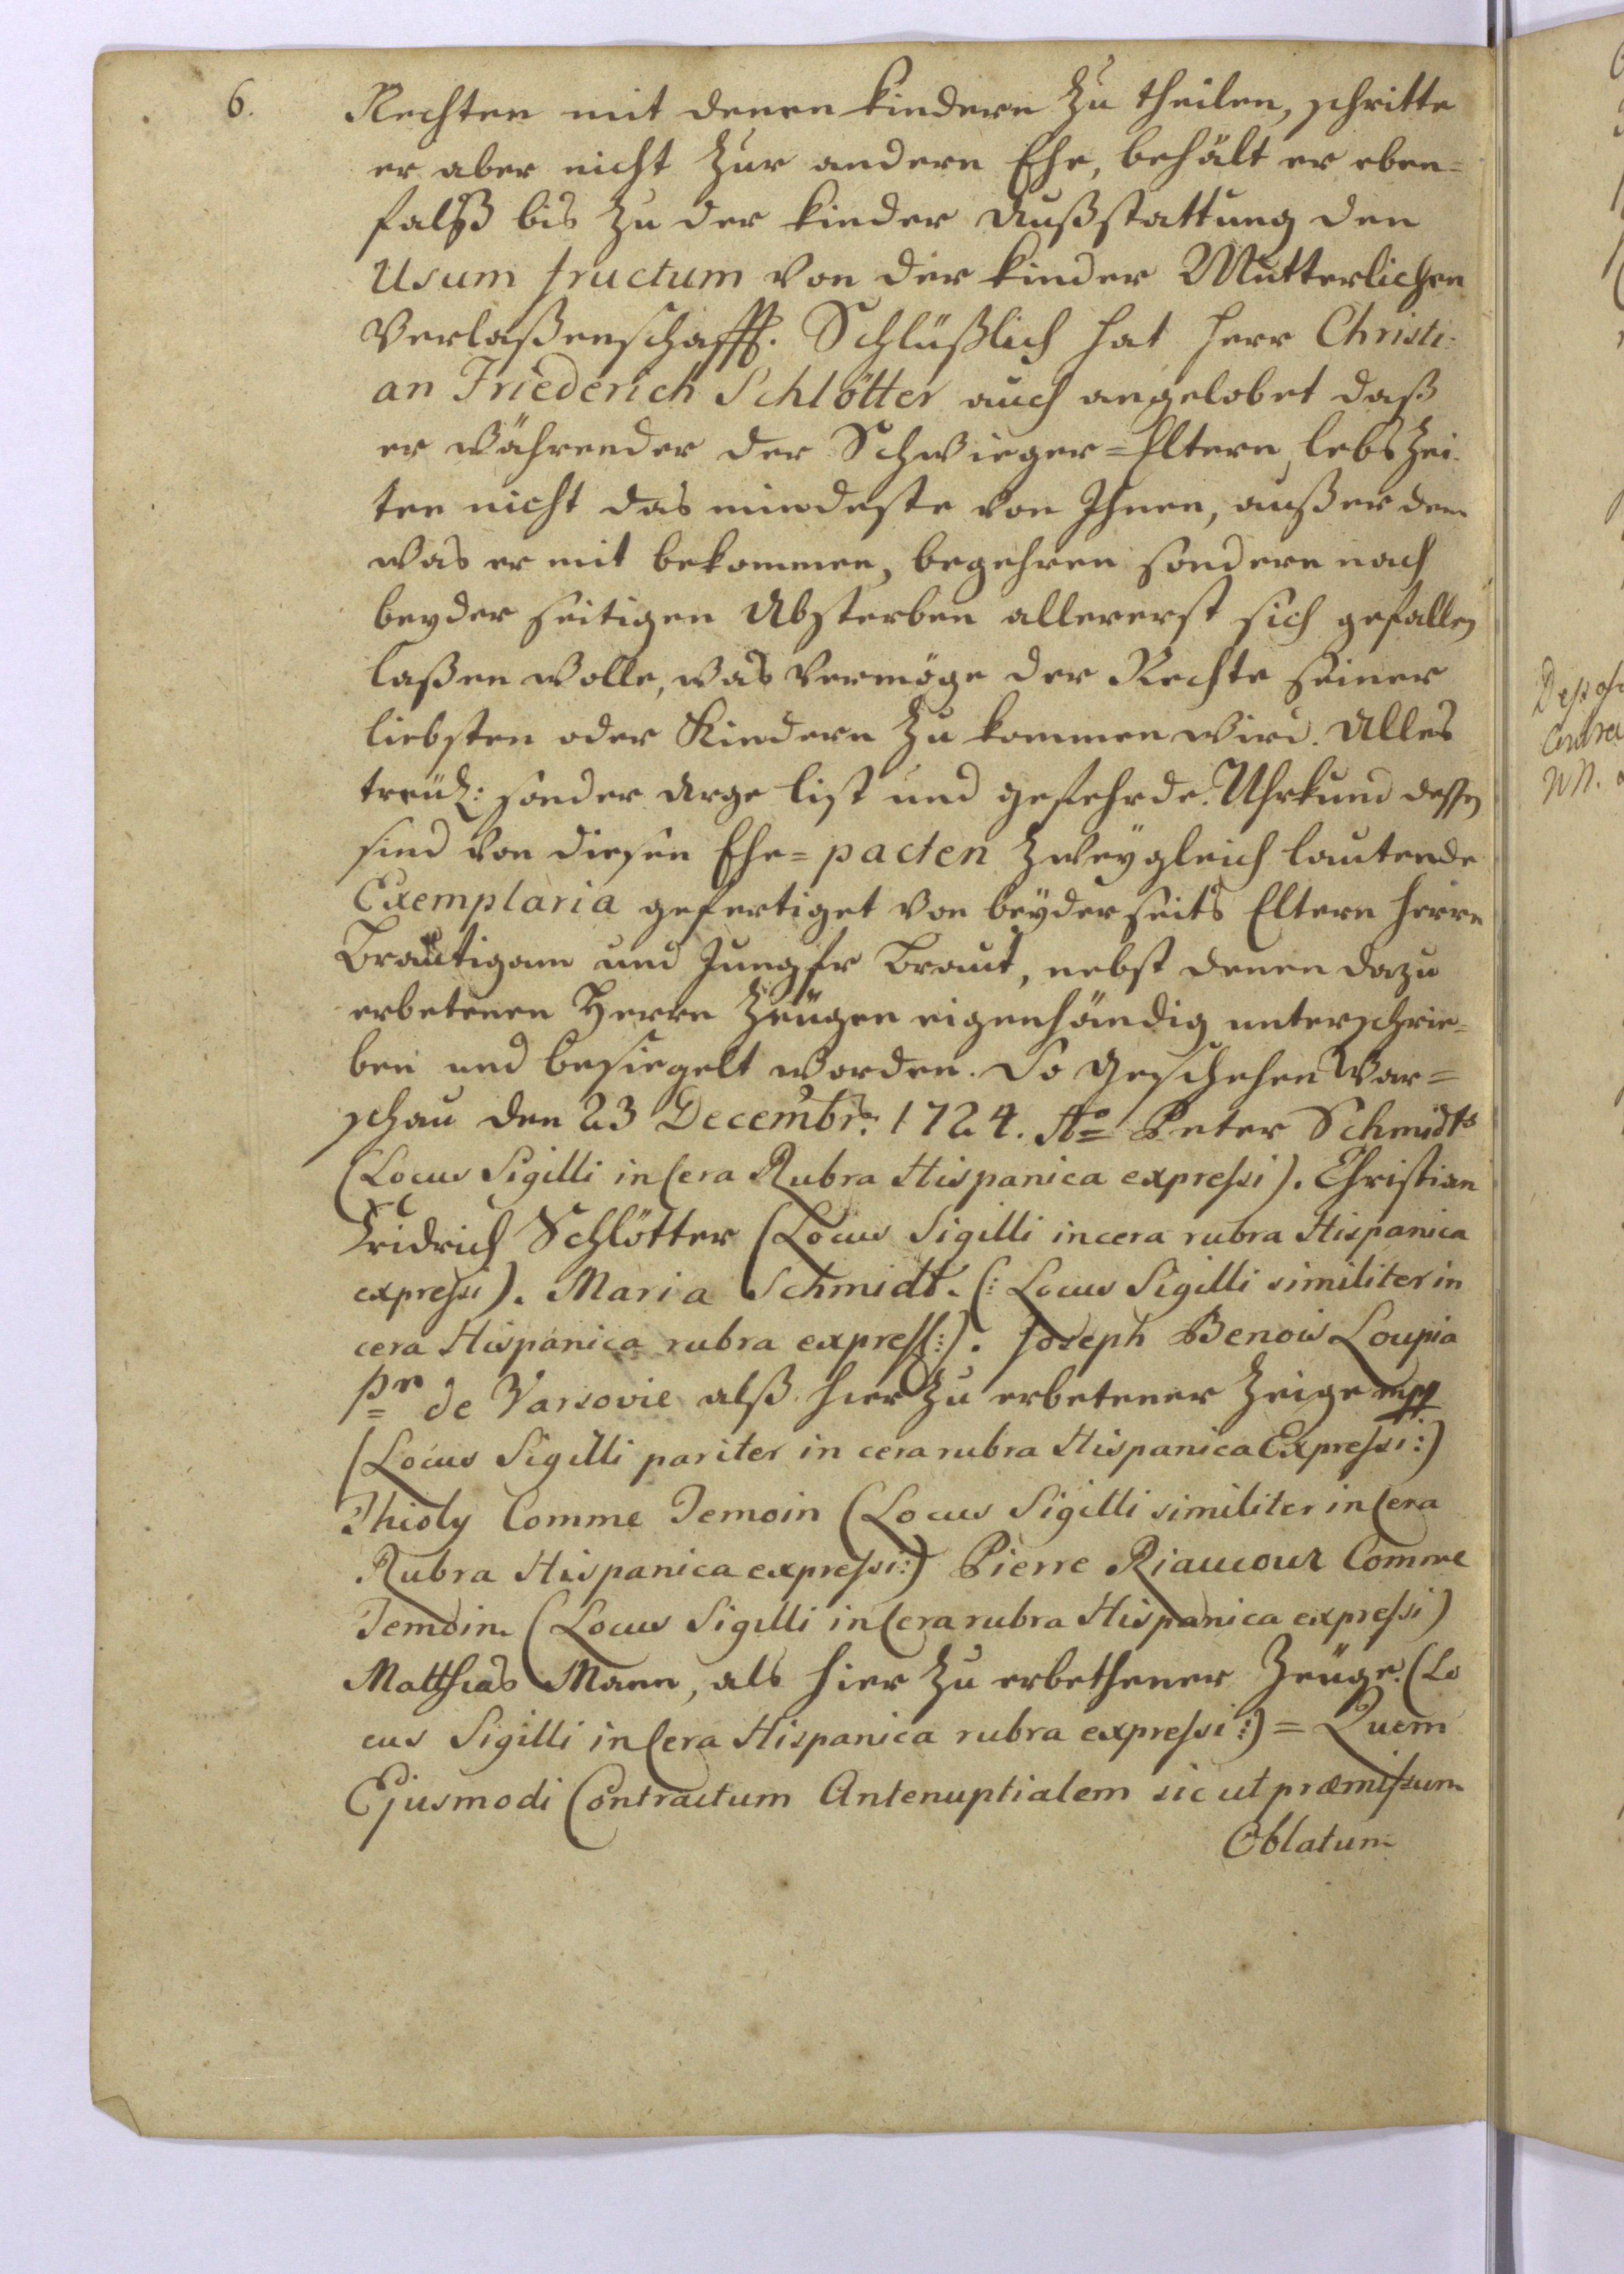 6.
Rechten mit denen kindern zu theilen, schritte
er aber nicht zur andern Ehe, behält er eben=
falß bis zu der kinder Außstattung den
Usum fructum von der kinder Mütterlichen
Verlaßenschafft. Schlüßlich hat Herr Christi=
an Friederich Schlötter auch angelobet daß
er währender der Schwieger=Eltern lebs Zei=
ten nicht das mindeste von Ihnen, außer dem
was er mit bekommen, begehren sondern nach
beyder seitigen Absterben allererst sich gefallen
laßen wolle, was vermöge der Rechte seiner
liebsten oder Kindern zu kommen wird. Alles
treül: sonder arge list und gefehrde. Uhrkund dessen
sind von diesen Ehe=pacten zwey gleich lautende
Exemplaria gefertiget von beyderseits Eltern Herrn
Bräutigam und Jungfr Braut, nebst denen dazu
erbetenen Herrn Zeügen eigenhändig unterschrie=
ben und besiegelt worden. So geschehen War=
schau den 23 Decembr: 1724. Ao Peter Schmidts
(Locus Sigilli in Cera Rubra Hispanica expressi). Christian
Fridrich Schlötter (Locus Sigilli in cera rubra Hispanica
expressi). Maria Schmidt. (: Locus Sigilli similiter in
cera Hispanica rubra express:). Joseph Benois Loupia
Pr de Varsovie alß hier zu erbetener Zeige mpp
(Locus Sigilli pariter in cera rubra Hispanica Expressi:)
Thioly Comme Temoin (Locus Sigilli similiter in Cera
Rubra Hispanica expressi:) Pierre Riaucour Comme
Temoin. (Locus Sigilli in Cera rubra Hispanica expressi)
Matthias Mann, als hier zu erbethener Zeüge. (Lo
cus Sigilli in Cera Hispanica rubra expressi:) = Quem
Ejusmodi Contractum Antenuptialem sic ut præmissum
Oblatum